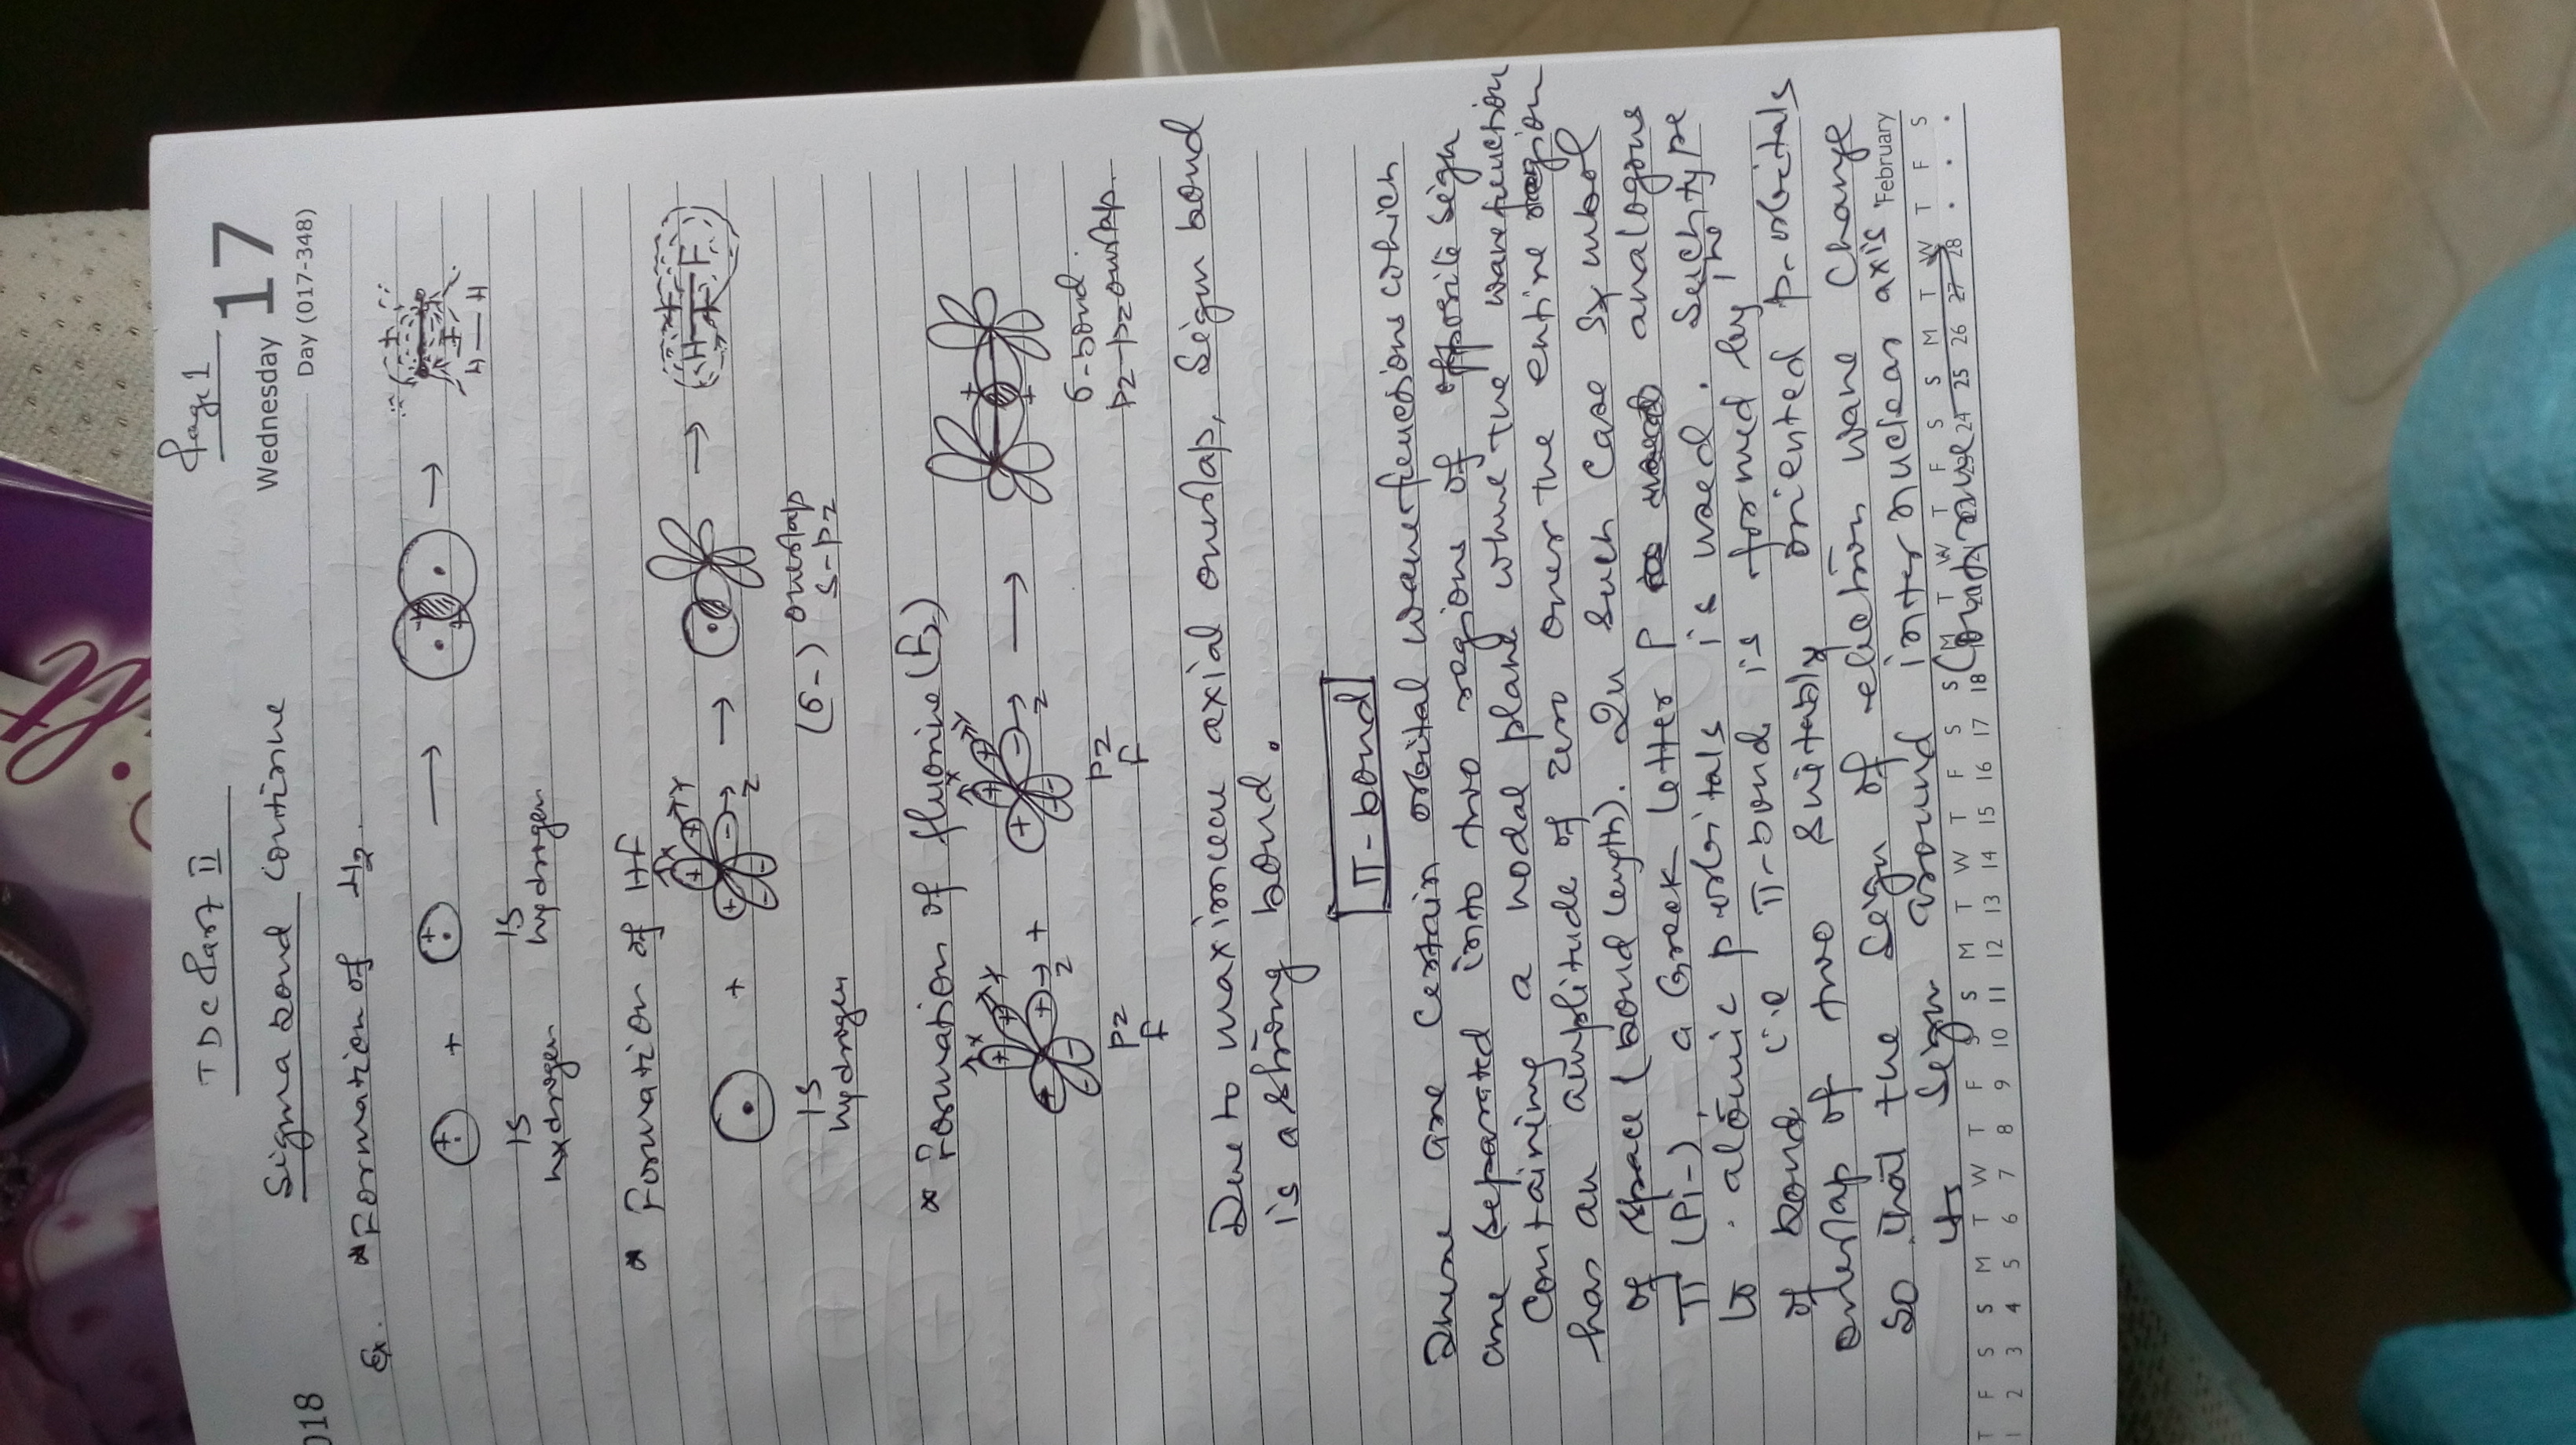 Page 1
TDC Part II
Wednesday 17
018
Day (017-348)
Sigma bond continue
Ex. * Formation of H2.
+ + + → + + → + +
H — H
1S 1S
hydrogen hydrogen
* Formation of HF
+ → → H — F
x y z
1S
hydrogen
(σ-) overlap
s-pz
* Formation of fluorine (F2)
x y z + x y z →
Pz Pz
F F
σ-bond.
pz-pz overlap.
Due to maximum axial overlap, Sigm bond
is a strong bond.
π-bond
There are certain orbital wave functions which
are separated into two regions of opposite sign
containing a nodal plane where the wave function
has an amplitude of zero over the entire region
of space (bond length). In such case symbol
π (Pi-) a Greek letter P analogous
to atomic p orbitals is used. Such type
of bond i.e π-bond is formed by the
overlap of two suitably oriented p-orbitals
so that the sign of electron wave change
its sign around inter nuclear axis
February
T F S S M T W T F S S M T W T F S S M T W T F S S M T W T F S
1 2 3 4 5 6 7 8 9 10 11 12 13 14 15 16 17 18 24 25 26 27 28 . . .